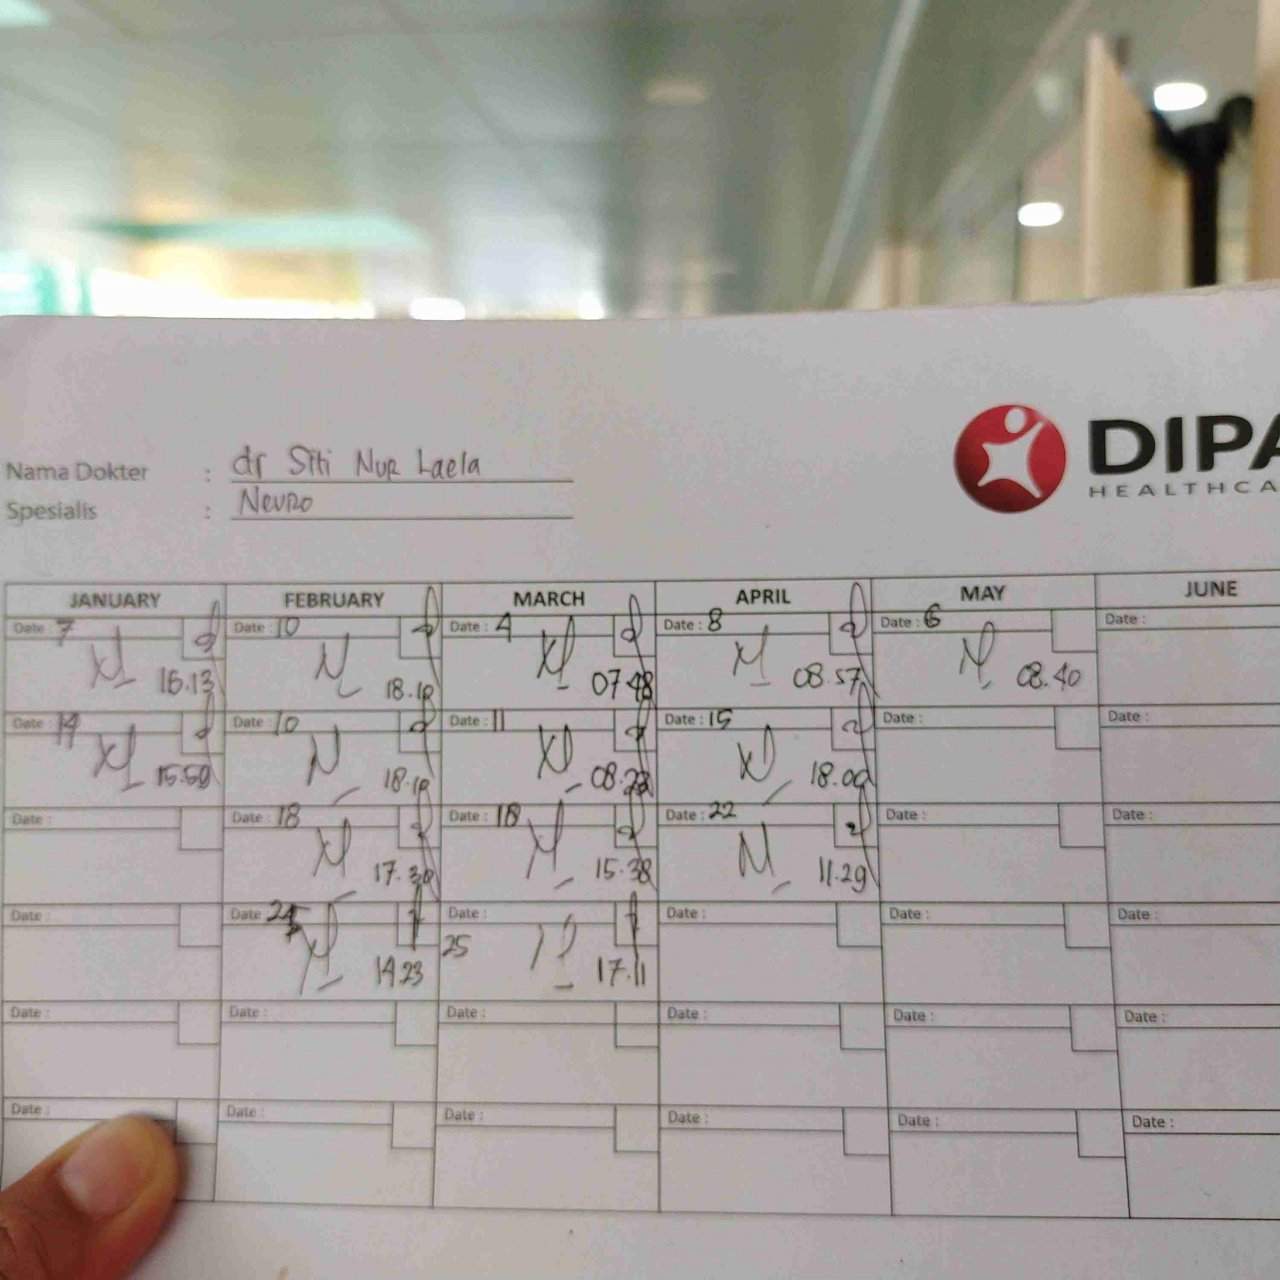 DIPA
HEALTHCA
Nama Dokter : dr Siti Nur Laela
Spesialis : Neuro
JANUARY FEBRUARY MARCH APRIL MAY JUNE
Date : 7 Date : 10 Date : 4 Date : 8 Date : 6 Date :
16.13 18.10 07.48 08.57 08.40
Date : 14 Date : 10 Date : 11 Date : 15 Date : Date :
15.50 18.10 08. 18.00
Date : Date : 18 Date : 18 Date : 22 Date : Date :
17.30 15.38 11.29
Date : Date Date : Date : Date : Date :
14 23 25 17.11
Date : Date : Date : Date : Date : Date :
Date : Date : Date : Date : Date : Date :